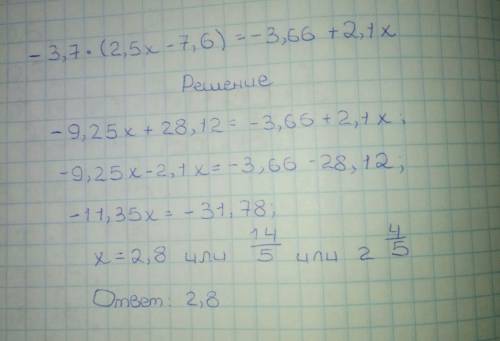 - 3,7 · (2,5x - 7,6) = -3,66 + 2,1x
Решение
-9,25x + 28,12 = -3,66 + 2,1x;
-9,25x - 2,1x = -3,66 - 28,12;
-11,35x = -31,78;
x = 2,8 или 14/5 или 2 4/5
Ответ: 2,8